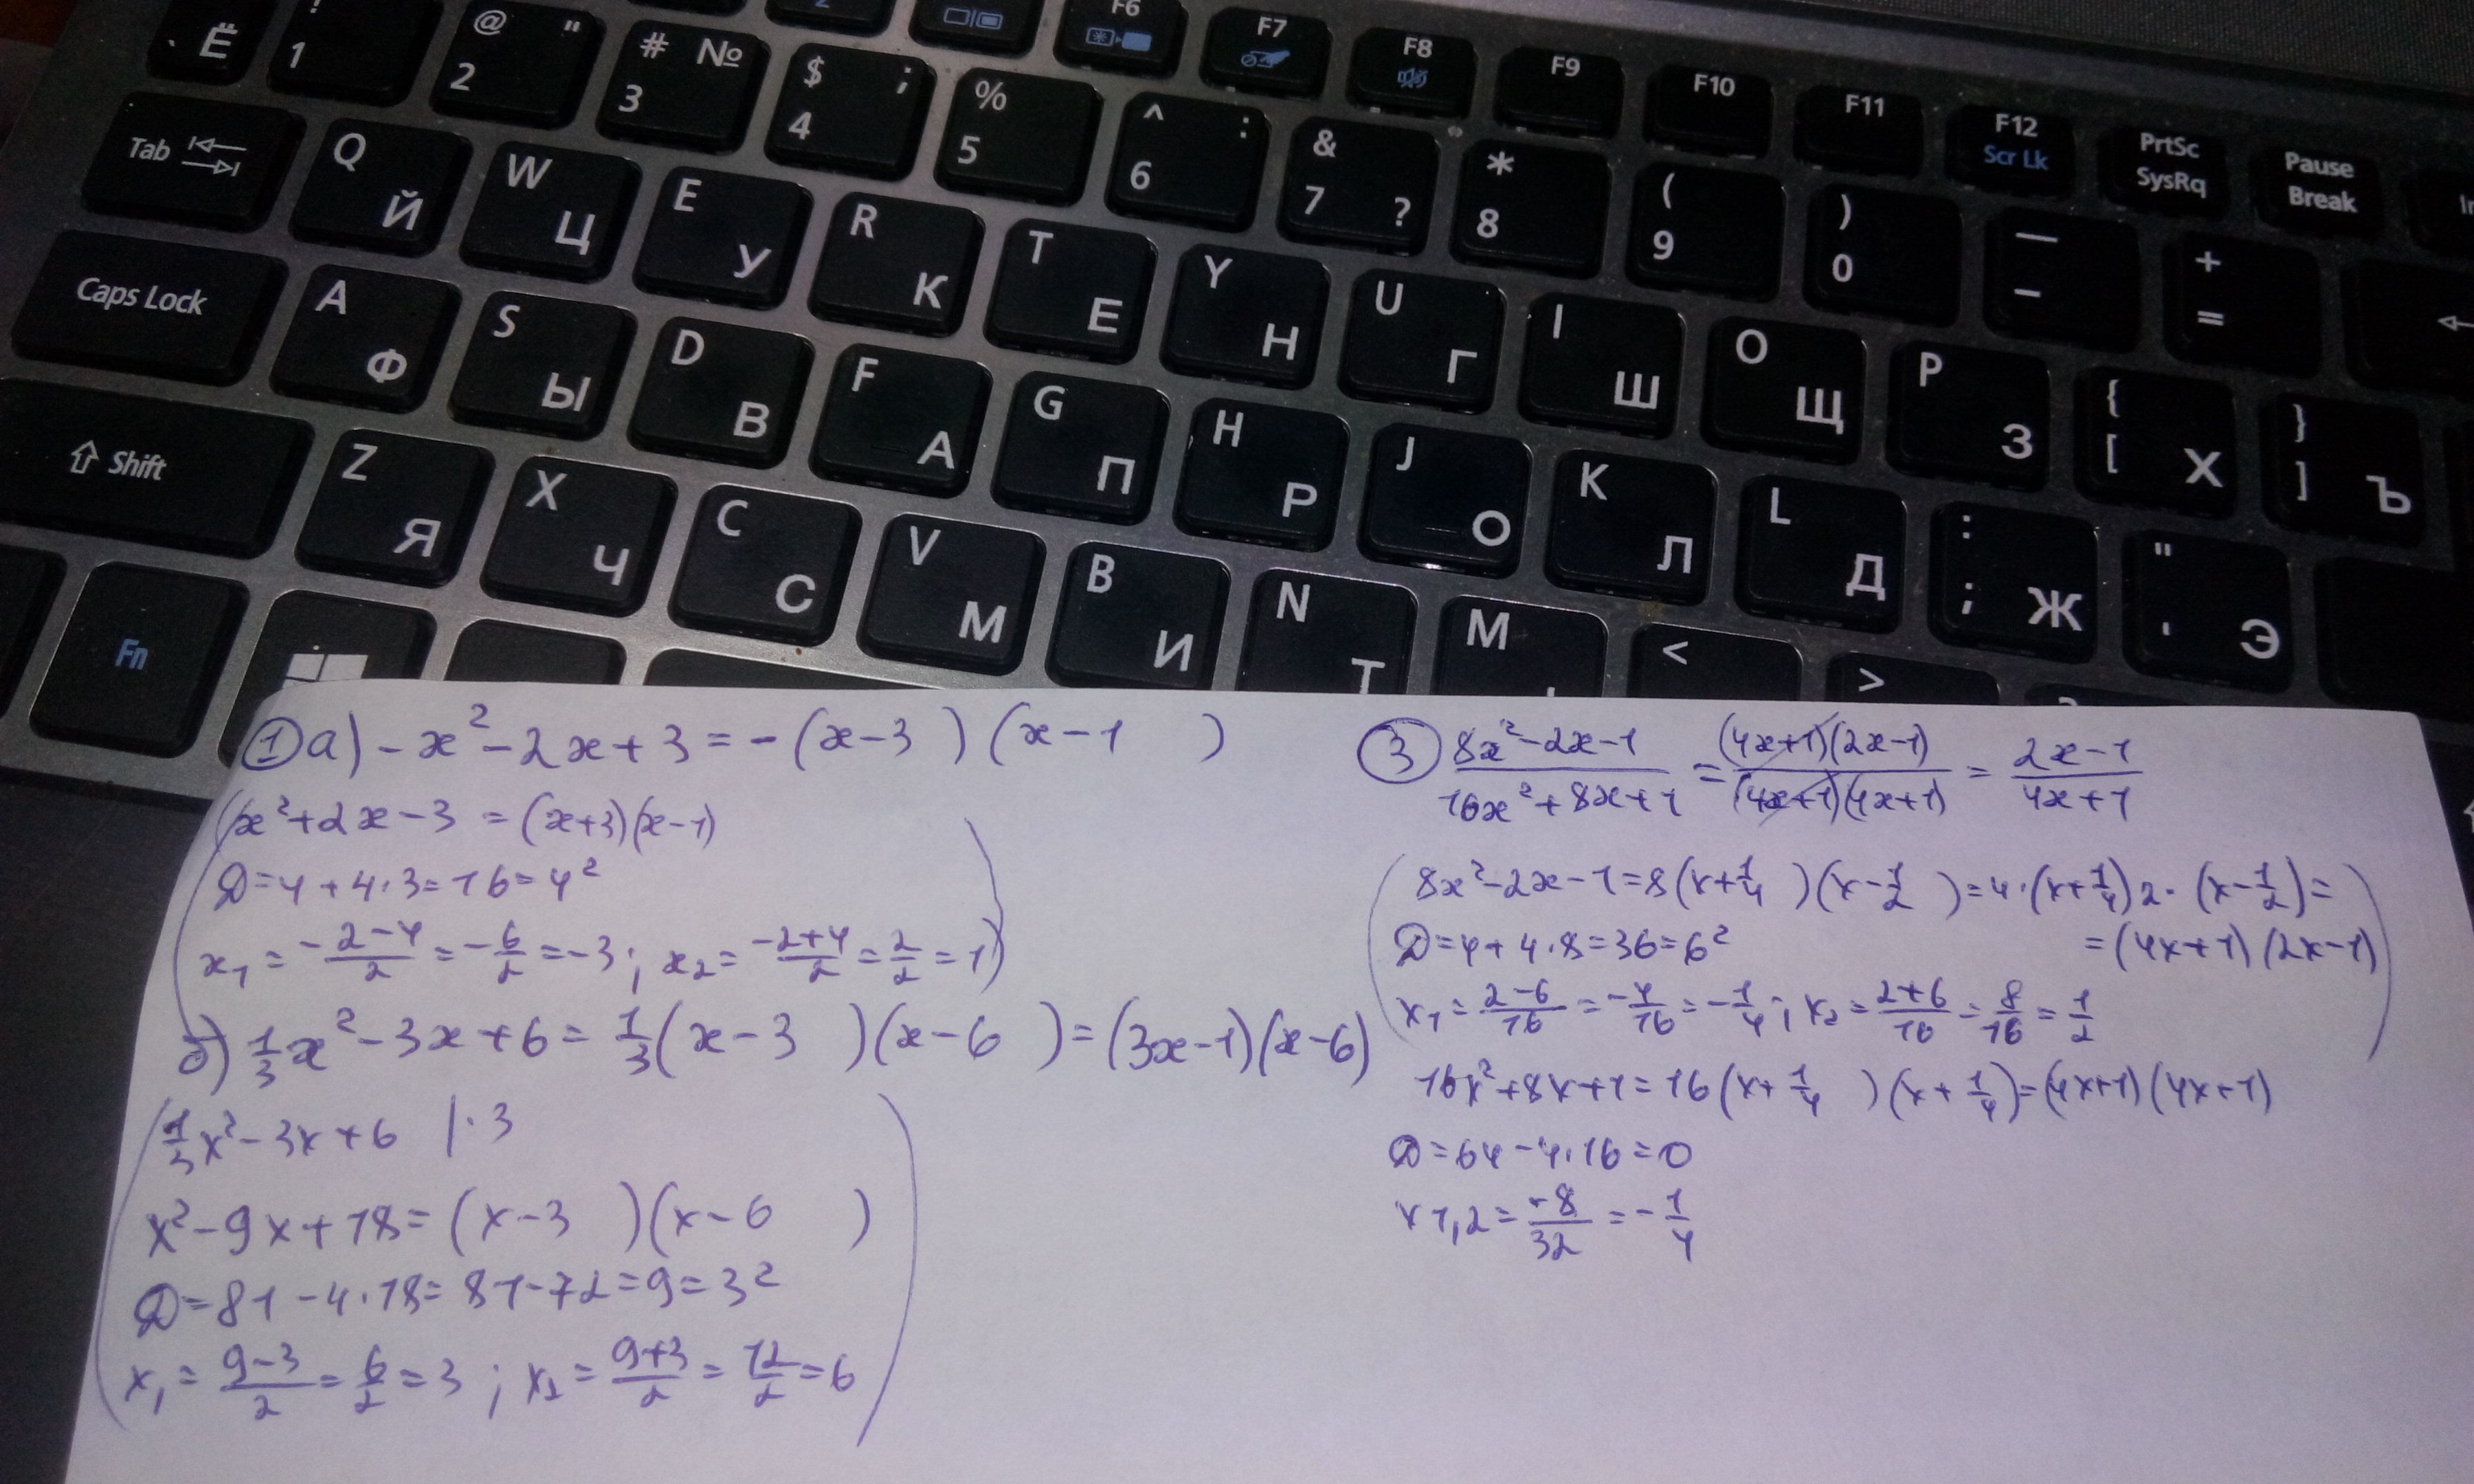 ! @ " # № $ ; % ^ : & ? * ( ) — + 
` Ё 1 2 3 4 5 6 7 8 9 0 - =
F6 F7 F8 F9 F10 F11 F12 Scr Lk PrtSc SysRq Pause Break
Tab Q Й W Ц E У R К T Е Y Н U Г I Ш O Щ P З { [ Х } ] Ъ
Caps Lock A Ф S Ы D В F А G П H Р J О K Л L Д : ; Ж " ' Э
Shift Z Я X Ч C С V М B И N Т M < >
Fn
① а) -x²-2x+3=-(x-3 )(x-1 )
(x²+2x-3 =(x+3)(x-1)
D=4+4·3=16=4²
x₁=-\frac{2-4}{2}=-\frac{6}{2}=-3; x₂=\frac{-2+4}{2}=\frac{2}{2}=1)
б) \frac{1}{3}x²-3x+6=\frac{1}{3}(x-3 )(x-6 )=(3x-1)(x-6)
(\frac{1}{3}x²-3x+6 |·3
x²-9x+18=(x-3 )(x-6 )
D=81-4·18=81-72=9=3²
x₁=\frac{9-3}{2}=\frac{6}{2}=3; x₂=\frac{9+3}{2}=\frac{12}{2}=6)
③ \frac{8x²-2x-1}{16x²+8x+1}=\frac{(4x+1)(2x-1)}{(4x+1)(4x+1)}=\frac{2x-1}{4x+1}
(8x²-2x-1=8(x+\frac{1}{4} )(x-\frac{1}{2} )=4·(x+\frac{1}{4})2·(x-\frac{1}{2})=
=(4x+1)(2x-1)
D=4+4·8=36=6²
x₁=\frac{2-6}{16}=-\frac{4}{16}=-\frac{1}{4}; x₂=\frac{2+6}{16}=\frac{8}{16}=\frac{1}{2})
16x²+8x+1=16(x+\frac{1}{4} )(x+\frac{1}{4})=(4x+1)(4x+1)
D=64-4·16=0
x1,2=\frac{-8}{32}=-\frac{1}{4}